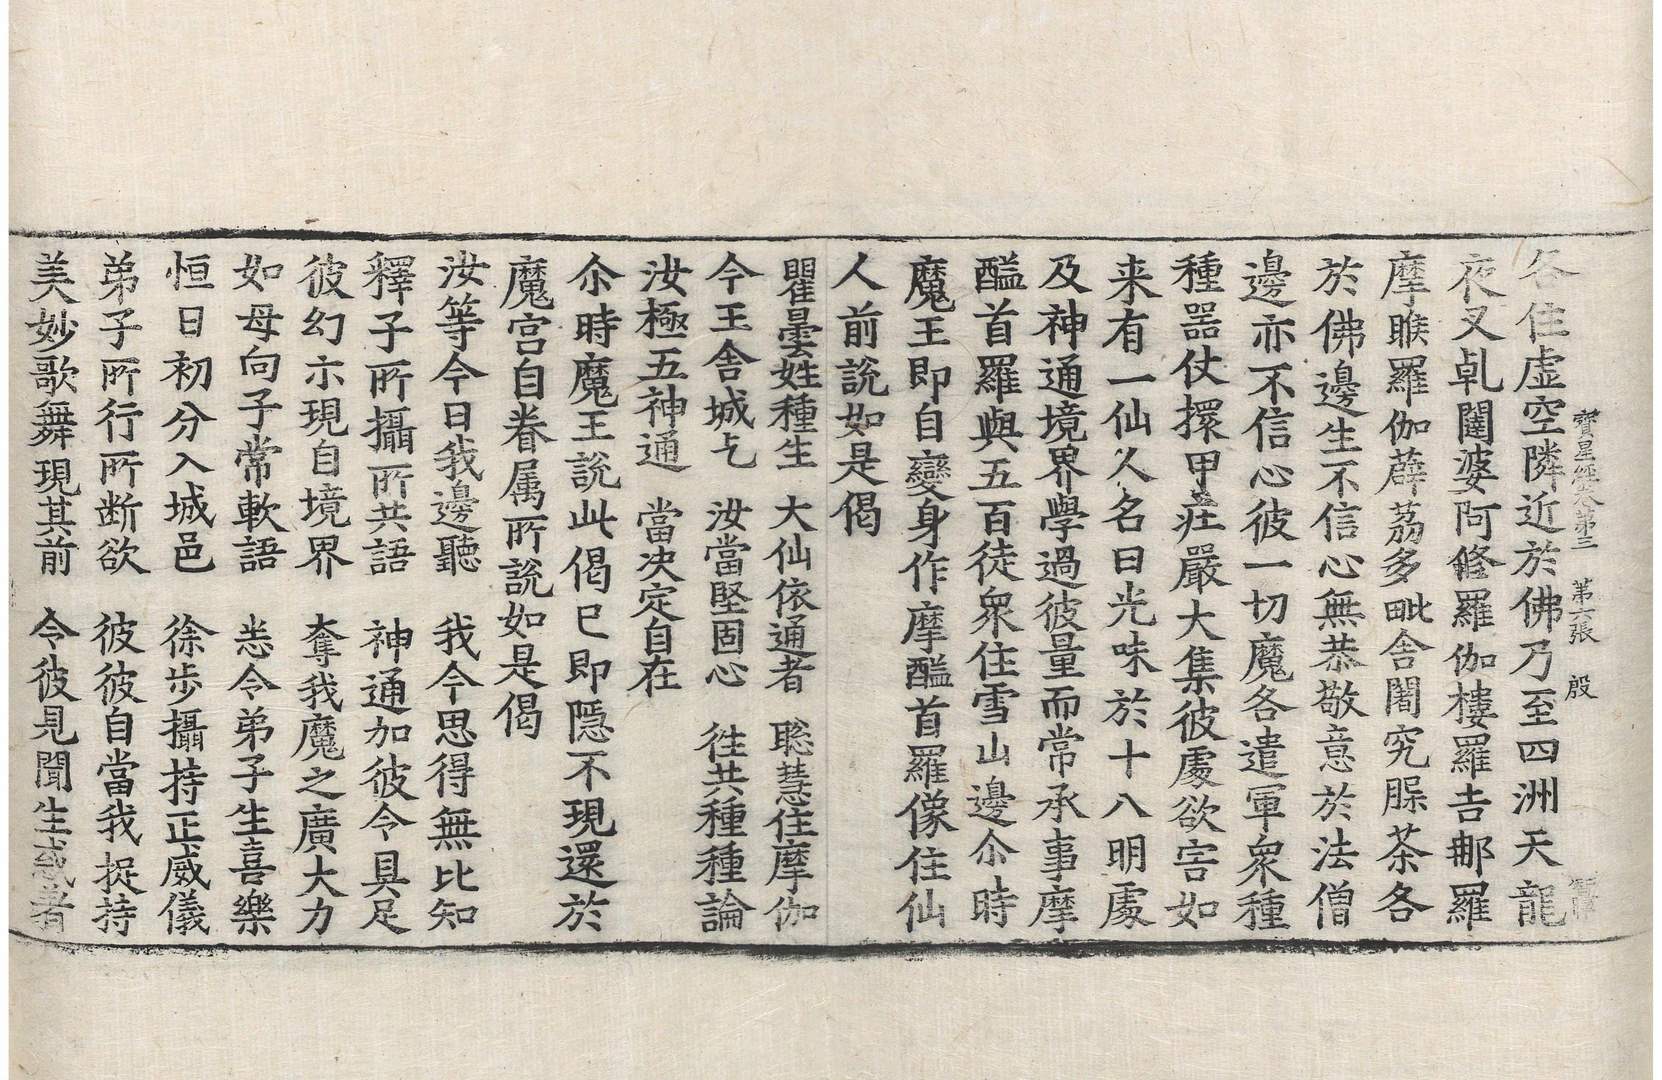 寶星經卷第三 第六張 殷
各住虛空隣近於佛乃至四洲天龍
夜叉乹闥婆阿修羅伽樓羅吉那羅
摩睺羅伽薜荔多毗舍闍究脲荼各
於佛邊生不信心無恭敬意於法僧
邊亦不信心彼一切魔各遣軍衆種
種器仗擐甲莊嚴大集彼處欲害如
来有一仙人名曰光味於十八明處
及神通境界學過彼量而常承事摩
醯首羅與五百徒衆住雪山邊尒時
魔王即自變身作摩醯首羅像住仙
人前說如是偈
瞿曇姓種生 大仙依通者 聡慧住摩伽
今王舍城乞 汝當堅固心 徃共種種論
汝極五神通 當决定自在
尒時魔王說此偈已即隱不現還於
魔宮自眷属所說如是偈
汝等今日我邊聽 我今思得無比知
釋子所攝所共語 神通加彼令具足
彼幻示現自境界 奪我魔之廣大力
如母向子常軟語 恙令弟子生喜樂
恒日初分入城邑 徐步攝持正威儀
弟子所行所断欲 彼彼自當我捉持
美妙歌舞現其前 令彼見聞生惑著